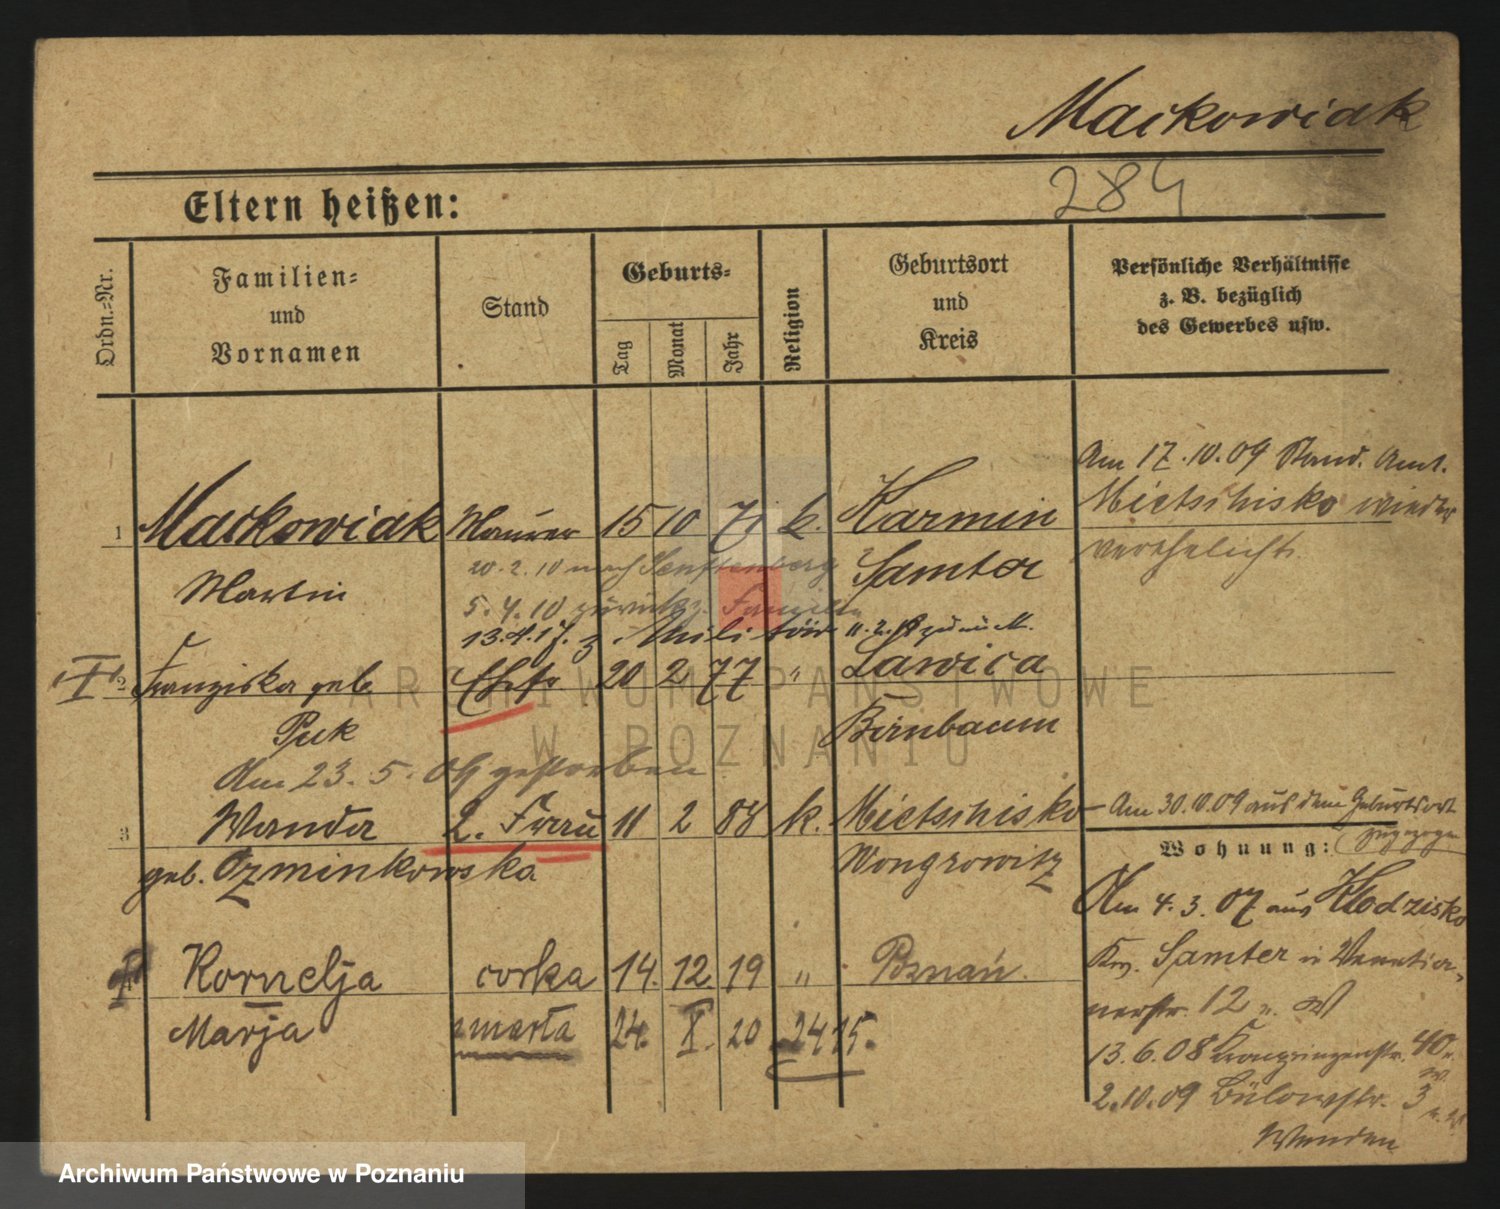 Maćkowiak
284
Eltern heißen:
Ordn.-Nr.
Familien-
und
Vornamen
Stand
Geburts-
Tag
Monat
Jahr
Religion
Geburtsort
und
Kreis
Persönliche Verhältnisse
z. B. bezüglich
des Gewerbes usw.
Am 17.10.09 Stand. Amt.
Mietschisko wieder
verehelicht.
1 Maćkowiak Maurer 15 10 71 k. Karmin
Martin Samter
10.2.10 nach Senftenberg
5.4.10 zurück z. Familie
13.4.17. z. Militär 11.2.18 zurück.
2 Franziska geb. Ehefr 20 2 77 " Lawica
Puk Birnbaum
Am 23. 5. 09 gestorben
3 Wanda 2. Frau 11 2 88 k. Mietschisko
geb. Ozminkowska Wongrowitz
Am 30.10.09 aus dem Geburtsort
zugezogen
Wohnung:
Am 4.3.07 aus Kłodzisko
Kr. Samter in Venetia-
nerstr. 12
13.6.08 Kronprinzenstr. 40
2.10.09 Bülowstr. 3
Kornelja corka 14. 12. 19 " Poznań.
Marja zmarła 24. X. 20 2415.
ARCHIWUM PAŃSTWOWE
W POZNANIU
Archiwum Państwowe w Poznaniu